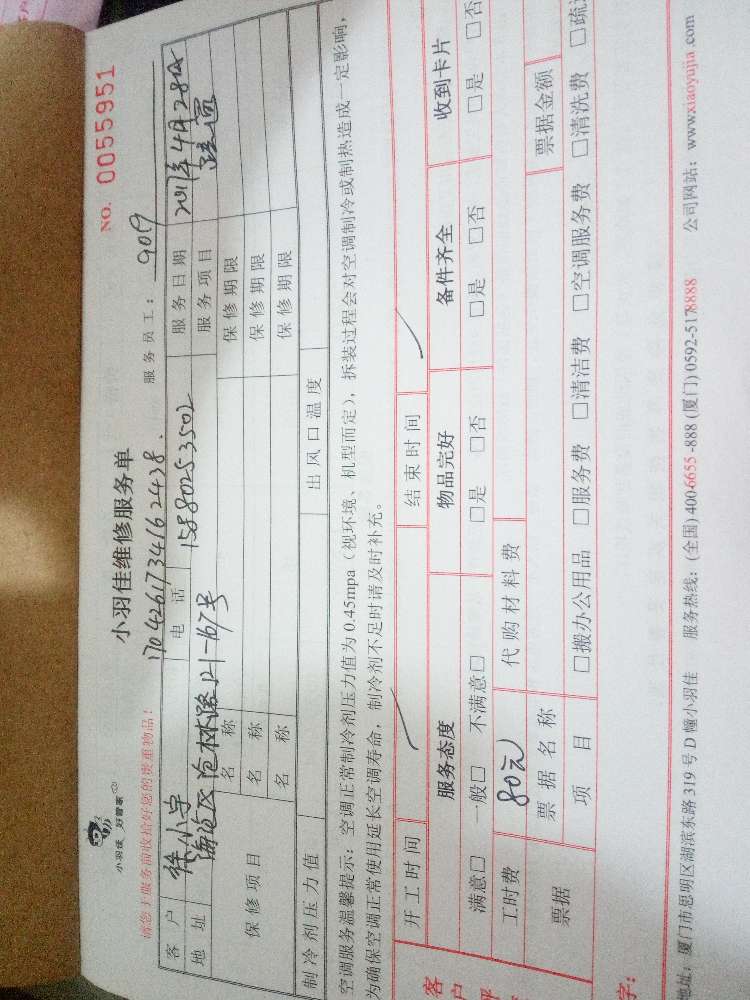 小羽佳 好管家
小羽佳维修服务单
NO. 0055951
请您于服务前收拾好您的贵重物品！
170426173416 2438.
服务员工： 9019
客户 徐小学 电话 15880253502 服务日期 2017年4月28日
地址 海沧区沧林路121-167号 服务项目
保修项目 名称 保修期限
名称 保修期限
名称 保修期限
制冷剂压力值 出风口温度
空调服务温馨提示：空调正常制冷剂压力值为 0.45mpa（视环境、机型而定），拆装过程会对空调制冷或制热造成一定影响，
为确保空调正常使用延长空调寿命，制冷剂不足时请及时补充。
开工时间 结束时间
客户 服务态度 物品完好 备件齐全 收到卡片
满意□ 一般□ 不满意□ □是 □否 □是 □否 □是 □否
工时费 80元 代购材料费
票据 票据名称 票据金额
项目 □搬办公用品 □服务费 □清洁费 □空调服务费 □清洗费 □疏
字：
地址：厦门市思明区湖滨东路 319 号 D 幢小羽佳 服务热线：(全国) 400-6655-888 (厦门) 0592-5178888 公司网站：www.xiaoyujia.com